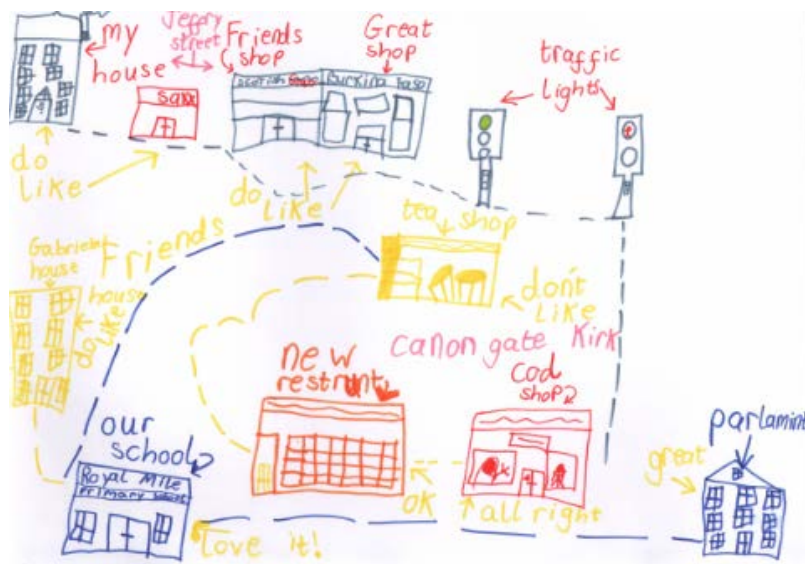 my
house
Jeffry
street
Friends
shop
Great
shop
traffic
lights
Scotish
Burkina Faso
do
like
do
like
tea shop
don't
like
Friends
house
Gabriels
house
do
like
canon gate Kirk
new
restrunt
cod
shop
our
school
Royal Mile
Primary
love it!
OK
all right
great
parlamint